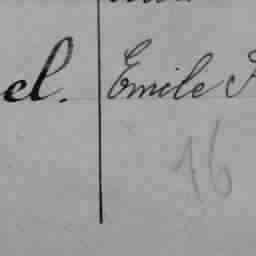 el. Emile
16